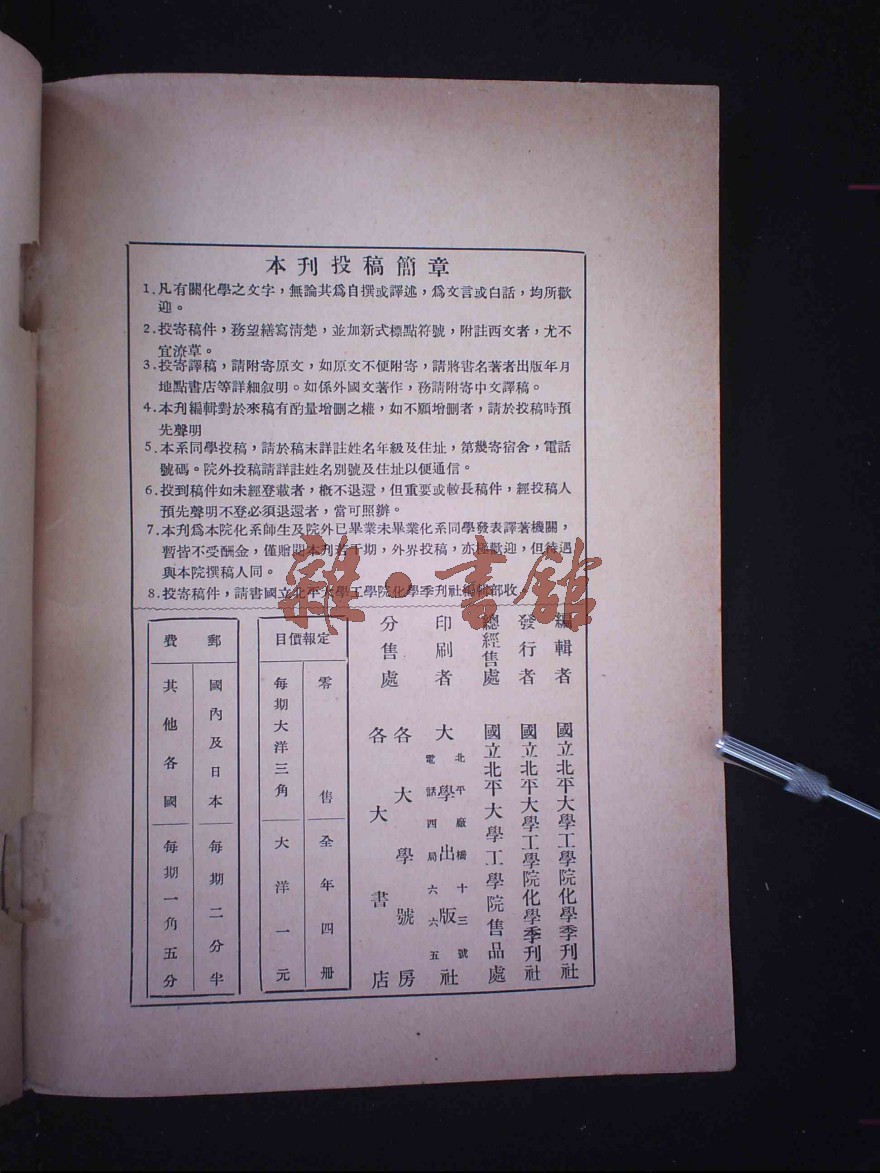 本刊投稿簡章
1. 凡有關化學之文字，無論其爲自撰或譯述，爲文言或白話，均所歡
迎。
2. 投寄稿件，務望繕寫清楚，並加新式標點符號，附註西文者，尤不
宜潦草。
3. 投寄譯稿，請附寄原文，如原文不便附寄，請將書名著者出版年月
地點書店等詳細叙明。如係外國文著作，務請附寄中文譯稿。
4. 本刊編輯對於來稿有酌量增删之權，如不願增删者，請於投稿時預
先聲明
5. 本系同學投稿，請於稿末詳註姓名年級及住址，第幾寄宿舍，電話
號碼。院外投稿請詳註姓名別號及住址以便通信。
6. 投到稿件如未經登載者，槪不退還，但重要或較長稿件，經投稿人
預先聲明不登必須退還者，當可照辦。
7. 本刊爲本院化系師生及院外已畢業未畢業化系同學發表譯著機關，
暫皆不受酬金，僅贈閱本刊若干期，外界投稿，亦極歡迎，但待遇
與本院撰稿人同。
8. 投寄稿件，請書國立北平大學工學院化學季刊社編輯部收。
編輯者 國立北平大學工學院化學季刊社
發行者 國立北平大學工學院化學季刊社
總經售處 國立北平大學工學院售品處
印刷者 大學出版社
北平廠橋十三號
電話四局六六五
分售處 各大學號房
各大書店
定報價目
零售 每期大洋三角
全年四册 大洋一元
郵費
國內及日本 每期二分半
其他各國 每期一角五分
雜·書館